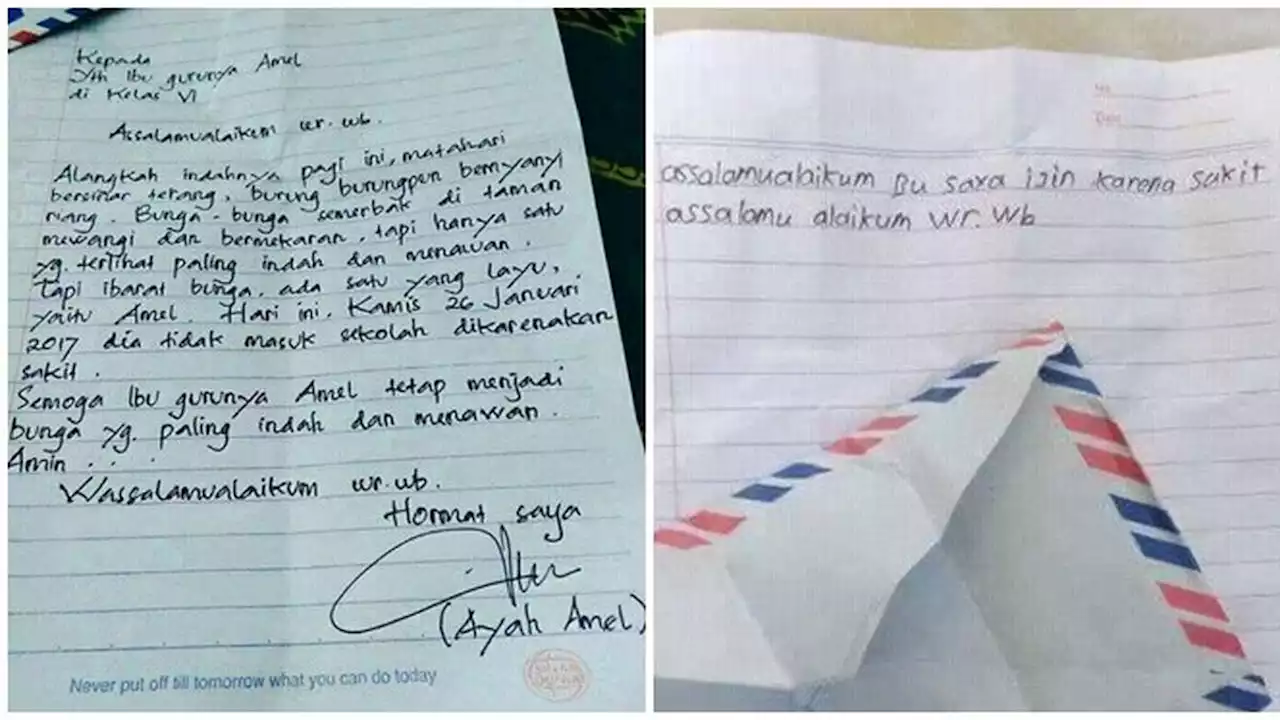 Kepada
Yth Ibu gurunya Amel
di Kelas VI
Assalamualaikum wr. wb.
Alangkah indahnya pagi ini, matahari
bersinar terang, burung burungpun bernyanyi
riang. Bunga-bunga semerbak di taman
mewangi dan bermekaran, tapi hanya satu
yg. terlihat paling indah dan menawan.
Tapi ibarat bunga, ada satu yang layu,
yaitu Amel. Hari ini, Kamis 26 Januari
2017 dia tidak masuk sekolah dikarenakan
sakit.
Semoga Ibu gurunya Amel tetap menjadi
bunga yg. paling indah dan menawan.
Amin . . .
Wassalamualaikum wr.wb.
Hormat saya
(Ayah Amel)
Never put off till tomorrow what you can do today
assalamualaikum Bu saya izin karena sakit
assalamu alaikum wr. wb